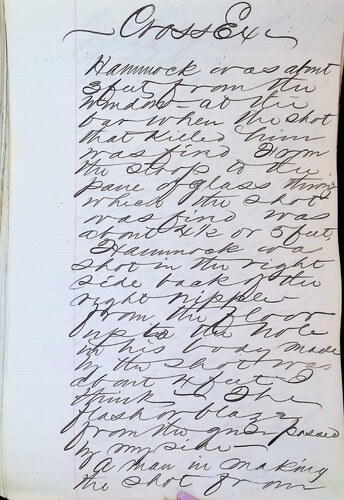 Cross Ex
Hammock was about
3 feet from the
window - at the
bar when the shot
that killed him
was fired From
the stoop to the
pane of glass through
which the shot
was fired was
about 4½ or 5 feet,
Hammock was
shot in the right
side back of the
right nipple
from the floor
up to the hole
in his body made
by the shot was
about 4 feet I
think - The
flash or blaze
from the gun passed
by my side
A man in making
the shot from